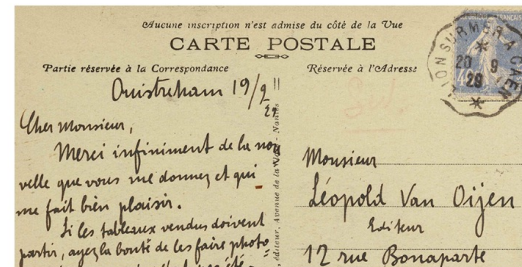 Aucune inscription n'est admise du côté de la Vue
CARTE POSTALE
Partie réservée à la Correspondance
Réservée à l'Adresse
LION SUR MER A CAEN
20 9
29
Ouistreham 19/9
29
Cher Monsieur,
Merci infiniment de la nou
velle que vous me donnez et qui
me fait bien plaisir.
Si les tableaux vendus doivent
partir, ayez la bonté de les faire photo
éditeur, Avenue de la
Monsieur
Léopold Van Oijen
Editeur
17 rue Bonaparte